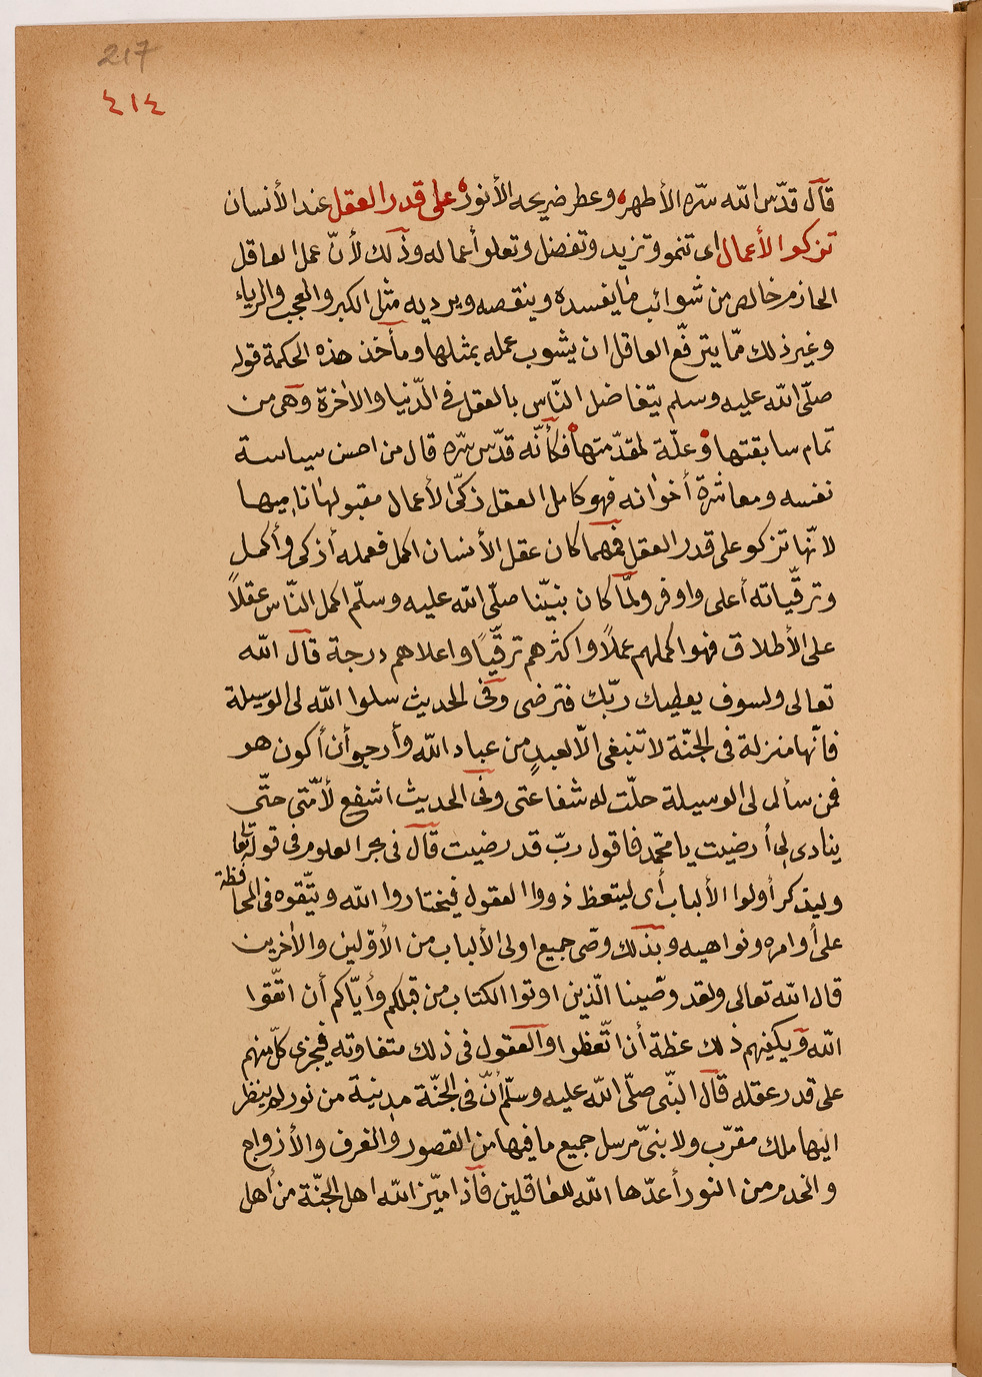 217
٤١٤
قال قدّس الله سرّه الأطهر، وعطر ضريحه الأنور على قدر العقل عند الأنسان
تزكوا الأعمال اى تنمو وتزيد وتفضل وتعلو أعماله وذلك لأنّ عمل العاقل
الحازم خالص من شوائب ما يفسده وينقصه ويرديه مثل الكبر والعجب والرياء
وغير ذلك ممّا يترفّع العاقل ان يشوب عمله بمثلها ومأخذ هذه الحكمة قوله
صلّى الله عليه وسلم يتفاضل النّاس بالعقل فى الدّنيا والاخرة وهى من
تمام سابقتها وعلّة لمقدّمتها فكأنّه قدّس سرّه قال من احسن سياسة
نفسه ومعاشرة أخوانه فهو كامل العقل زكىّ الأعمال مقبولها ناميها
لانّها تزكو على قدر العقل فمهما كان عقل الأنسان اكمل فعمله أزكى وأكمل
وترقّياته أعلى واوفر ولمّا كان نبيّنا صلّى الله عليه وسلّم اكمل النّاس عقلاً
على الأطلاق فهو اكملهم عملاً واكثرهم ترقّيًا واعلاهم درجة قال الله
تعالى ولسوف يعطيك ربّك فترضى وفى الحديث سلوا الله لى الوسيلة
فانّها منزلة فى الجنّة لا تنبغى الّا لعبدٍ من عباد الله وأرجو أن أكون هو
فمن سأل لى الوسيلة حلّت له شفاعتى وفى الحديث اشفع لأمّتى حتّى
ينادى لى أرضيت يا محمّد فاقول ربّ قد رضيت قال فى بحر العلوم فى قوله تعا
وليذكر أولوا الألباب أى ليتعظ ذووا العقول فيختاروا الله ويتّقوه فى المحافظة
على أوامره ونواهيه وبذلك وصّى جميع اولى الألباب من الأوّلين والأخرين
قال الله تعالى ولقد وصّينا الّذين اوتوا الكتاب من قبلكم وأيّاكم أن اتّقوا
الله ويكفيهم ذلك عظة أن اتّعظوا والعقول فى ذلك متفاوته فيجزى كلّ منهم
على قدر عقله قال النّبى صلّى الله عليه وسلّم أنّ فى الجنّة مدينة من نور لم ينظر
اليها ملك مقرّب ولا نبىّ مرسل جميع ما فيها من القصور والغرف والأزواج
والخدم من النور أعدّها الله للعاقلين فأذا ميّز الله اهل الجنّة من أهل